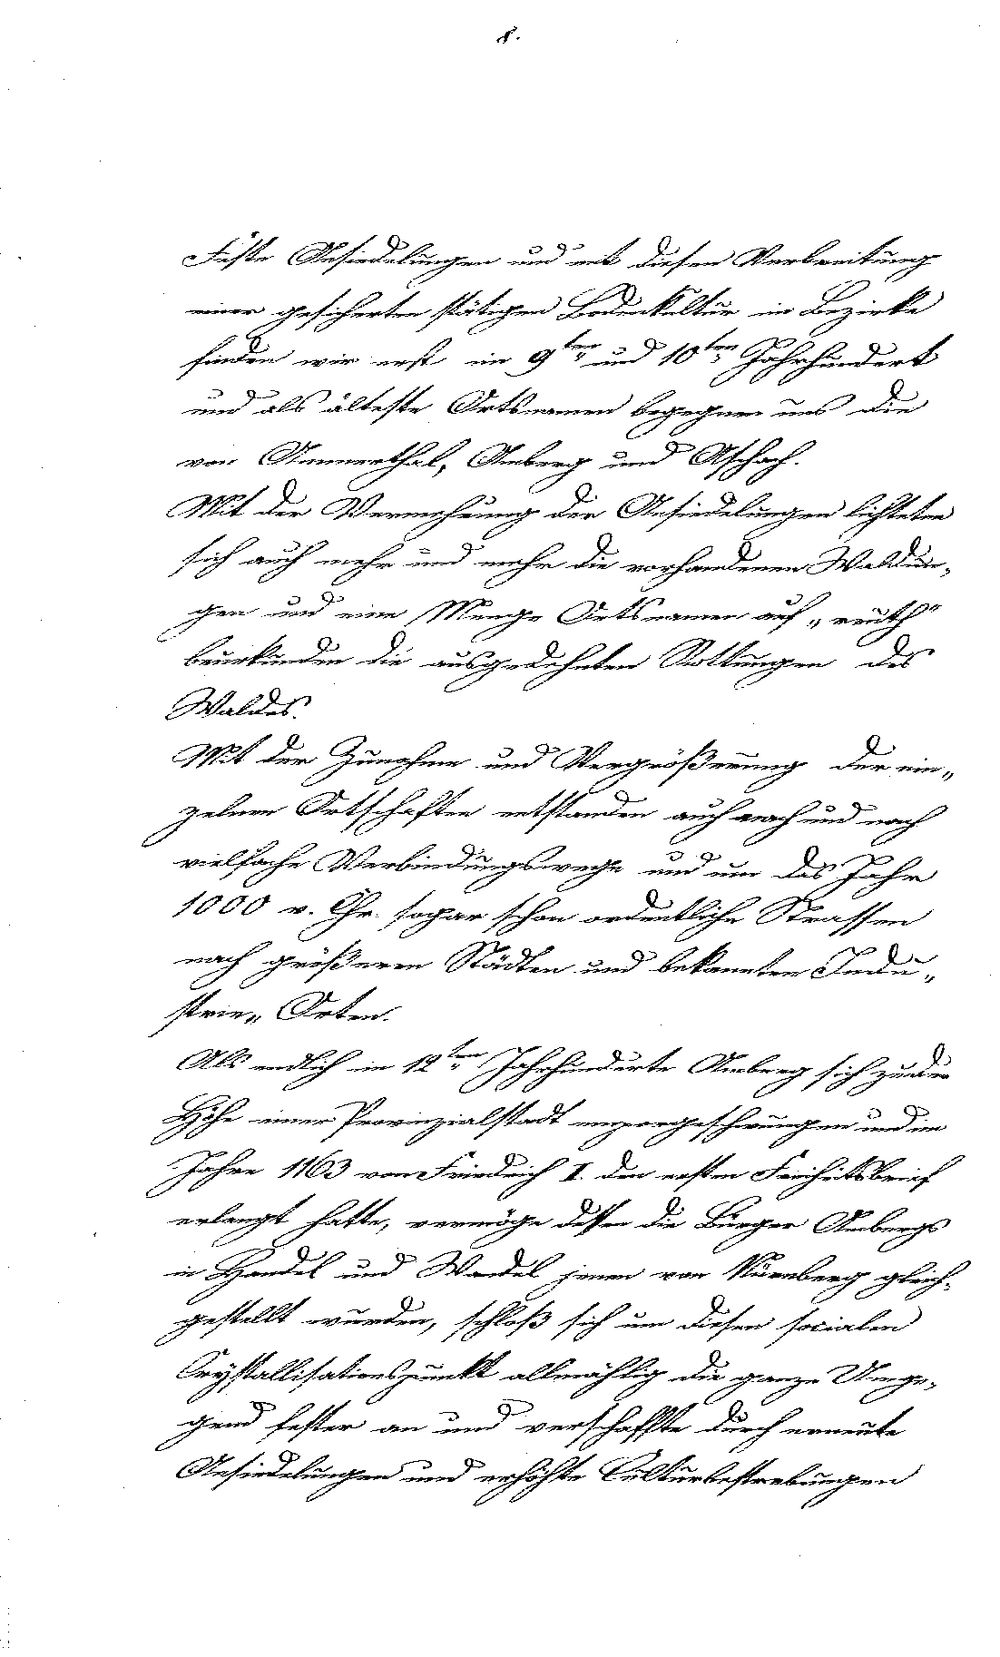 8.
Feste Ansiedelungen und mit diesen Verbreitung
einer gesicherten stätigen Bodenkultur im Bezirke
finden wir erst im 9ten und 10ten Jahrhundert
und als älteste Ortsnamen begegnen uns die
von Ammerthal, Amberg und Aschach.
Mit der Vermehrung der Ansiedelungen lichteten
sich auch mehr und mehr die vorhandenen Waldun„
gen und eine Menge Ortsnamen auf „reuth“
beurkunden die ausgedehnten Rottungen des
Waldes.
Mit der Zunahme und Vergrößerung der ein„
zelnen Ortschaften entstanden auch nach und nach
vielfache Verbindungswege und um das Jahr
1000 n. Chr. sogar schon ordentliche Strassen
nach größeren Städten und bekannten Indu„
strie„ Orten.
Als endlich im 12ten Jahrhunderte Amberg sich zu der
Höhe einer Provinzialstadt emporgeschwungen und im
Jahre 1163 von Friedrich I. den ersten Freiheitsbrief
erlangt hatte, vermöge dessen die Bürger Ambergs
in Handel und Wandel jenen von Nürnberg gleich„
gestellt wurden, schloß sich um diesen socialen
Crystallisationspunkt allmählig die ganze Umge„
gend fester an und verschaffte durch erneute
Ansiedelungen und erhöhte Culturbestrebungen